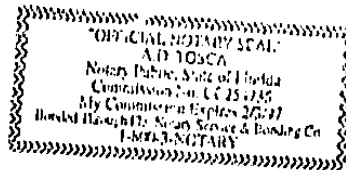 "OFFICIAL NOTARY SEAL"
A.D. TOSCA
Notary Public, State of Florida
Commission No. CC
My Commission Expires
Bonded Through Fla. Notary Service & Bonding Co
1-800-3-NOTARY